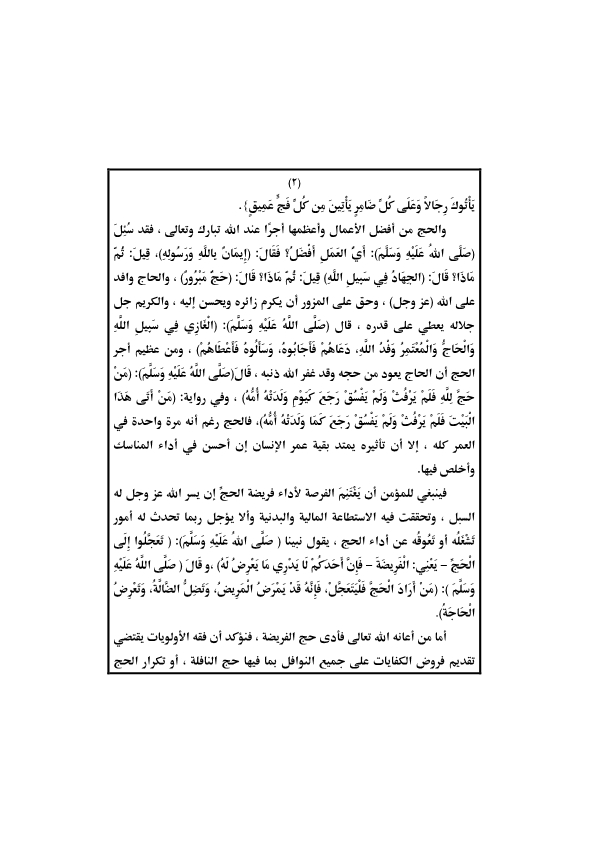 (٢)
يَأْتُوكَ رِجَالاً وَعَلَى كُلِّ ضَامِرٍ يَأْتِينَ مِن كُلِّ فَجٍّ عَمِيقٍ}.
والحج من أفضل الأعمال وأعظمها أجرًا عند الله تبارك وتعالى ، فقد سُئِلَ
(صَلَّى اللهُ عَلَيْهِ وَسَلَّمَ): أَيُّ العَمَلِ أَفْضَلُ؟ فَقَالَ: (إِيمَانٌ بِاللَّهِ وَرَسُولِهِ)، قِيلَ: ثُمَّ
مَاذَا؟ قَالَ: (الجِهَادُ فِي سَبِيلِ اللَّهِ) قِيلَ: ثُمَّ مَاذَا؟ قَالَ: (حَجٌّ مَبْرُورٌ) ، والحاج وافد
على الله (عز وجل) ، وحق على المزور أن يكرم زائره ويحسن إليه ، والكريم جل
جلاله يعطي على قدره ، قال (صَلَّى اللَّهُ عَلَيْهِ وَسَلَّمَ): (الْغَازِي فِي سَبِيلِ اللَّهِ
وَالْحَاجُّ وَالْمُعْتَمِرُ وَفْدُ اللَّهِ، دَعَاهُمْ فَأَجَابُوهُ، وَسَأَلُوهُ فَأَعْطَاهُمْ) ، ومن عظيم أجر
الحج أن الحاج يعود من حجه وقد غفر الله ذنبه ، قَالَ(صَلَّى اللَّهُ عَلَيْهِ وَسَلَّمَ): (مَنْ
حَجَّ لِلَّهِ فَلَمْ يَرْفُثْ وَلَمْ يَفْسُقْ رَجَعَ كَيَوْمِ وَلَدَتْهُ أُمُّهُ) ، وفي رواية: (مَنْ أَتَى هَذَا
الْبَيْتَ فَلَمْ يَرْفُثْ وَلَمْ يَفْسُقْ رَجَعَ كَمَا وَلَدَتْهُ أُمُّهُ)، فالحج رغم أنه مرة واحدة في
العمر كله ، إلا أن تأثيره يمتد بقية عمر الإنسان إن أحسن في أداء المناسك
وأخلص فيها.
فينبغي للمؤمن أن يَغْتَنِمَ الفرصة لأداء فريضة الحجِّ إن يسر الله عز وجل له
السبل ، وتحققت فيه الاستطاعة المالية والبدنية وألا يؤجل ربما تحدث له أمور
تَشْغَلُه أو تَعُوقُه عن أداء الحج ، يقول نبينا ( صَلَّى اللهُ عَلَيْهِ وَسَلَّمَ): ( تَعَجَّلُوا إِلَى
الْحَجِّ – يَعْنِي: الْفَرِيضَةَ – فَإِنَّ أَحَدَكُمْ لَا يَدْرِي مَا يَعْرِضُ لَهُ) ،و قَالَ ( صَلَّى اللَّهُ عَلَيْهِ
وَسَلَّمَ ): (مَنْ أَرَادَ الْحَجَّ فَلْيَتَعَجَّلْ، فَإِنَّهُ قَدْ يَمْرَضُ الْمَرِيضُ، وَتَضِلُّ الضَّالَّةُ، وَتَعْرِضُ
الْحَاجَةُ).
أما من أعانه الله تعالى فأدى حج الفريضة ، فنؤكد أن فقه الأولويات يقتضي
تقديم فروض الكفايات على جميع النوافل بما فيها حج النافلة ، أو تكرار الحج